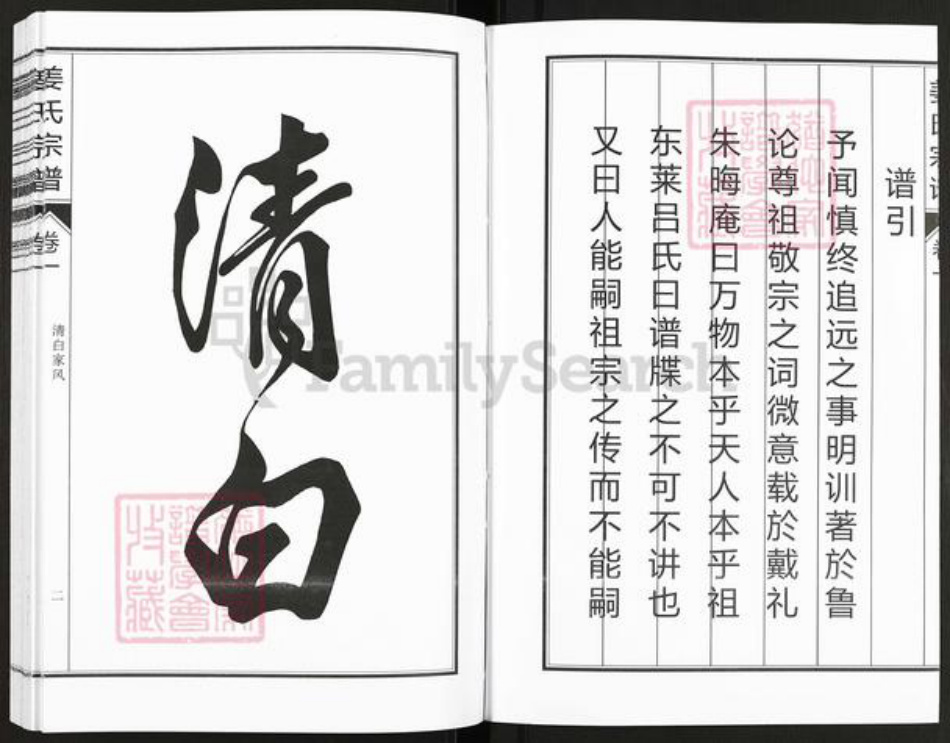 谱引
予闻慎终追远之事明训著於鲁
论尊祖敬宗之词微意载於戴礼
朱晦庵曰万物本乎天人本乎祖
东莱吕氏曰谱牒之不可不讲也
又曰人能嗣祖宗之传而不能嗣
清白
姜氏宗谱
卷一
清白家风
二
FamilySearch